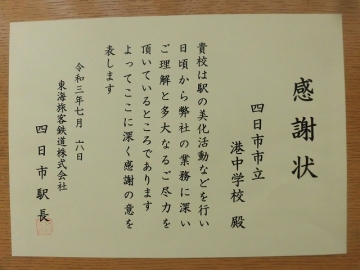 感謝状
四日市市立
港中学校 殿
貴校は駅の美化活動などを行い
日頃から弊社の業務に深い
ご理解と多大なるご尽力を
頂いているところであります
よってここに深く感謝の意を
表します
令和三年七月 六日
東海旅客鉄道株式会社
四日市駅長